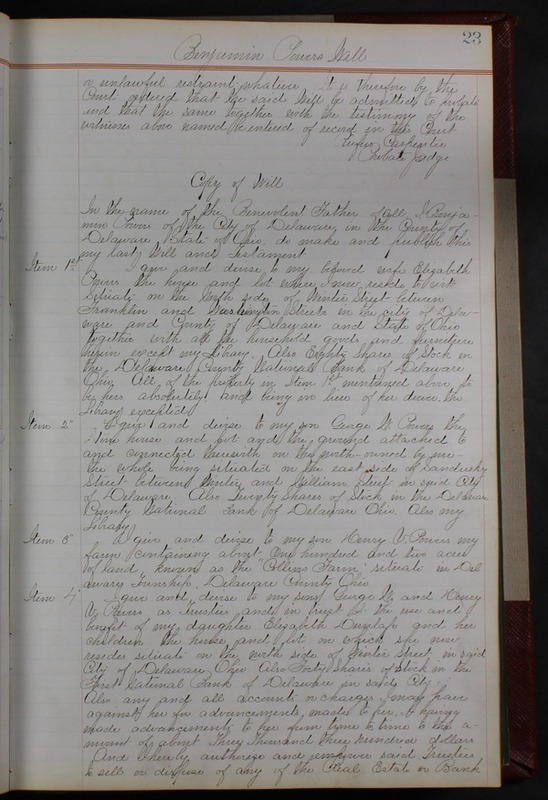 23
Benjamin Powers Will
or unlawful restraint whatever It is therefore by the
Court ordered that the said Will be admitted to probate
and that the same together with the testimony of the
witnesses above named be entered of record in this Court
Carpenter
Probate Judge
Copy of Will
In the name of the Benevolent Father of all, I Benja-
min Powers of the City of Delaware, in the County of
Delaware State of Ohio, do make and publish this
my last Will and Testament
Item 1st I give and devise to my beloved wife Elizabeth
Powers the house and lot where I now reside, to wit
Situate on the North side of Winter Street between
Franklin and Washington Streets in the city of Dela-
ware and County of Delaware and State of Ohio
together with all the household goods and furniture
therein except my Library. Also Eighty Shares of Stock in
the Delaware County National Bank of Delaware
Ohio All of the property in Item 1st mentioned above to
be hers absolutely and being in lieu of her dower the
Library excepted
Item 2" I give and devise to my son George W Powers the
Stone house and lot and the ground attached to
and connected therewith on the north owned by me
the whole being situated on the east side of Sandusky
Street between Winter and William Street in said City
of Delaware Also Twenty Shares of Stock in the Delaware
County National Bank of Delaware Ohio. Also my
Library
Item 3" I give and devise to my son Henry V. Powers my
farm containing about One hundred and two acres
of land, known as the "Collins Farm" situate in Del
aware Township, Delaware County Ohio
Item 4" I give and devise to my sons George W. and Henry
V. Powers as Trustees and in trust for the use and
benefit of my daughter Elizabeth Dunlap and her
children the house and lot on which she now
resides situate on the north side of Winter Street in said
City of Delaware, Ohio Also Forty Shares of Stock in the
First National Bank of Delaware in said City
Also any and all accounts or charges I may have
against her for advancements made to her, I having
made advancements to her from time to time to the a-
mount of about Three Thousand three hundred dollars
And I hereby authorize and empower said Trustees
to sell or dispose of any of the Real Estate or Bank